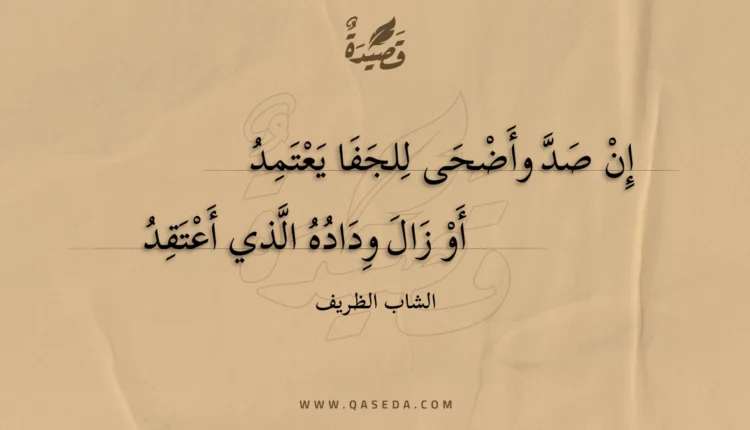 قَصِيْدَةٌ
إِنْ صَدَّ وأَضْحَى لِلجَفَا يَعْتَمِدُ
أَوْ زَالَ وِدَادُهُ الَّذي أَعْتَقِدُ
الشاب الظريف
WWW.QASEDA.COM